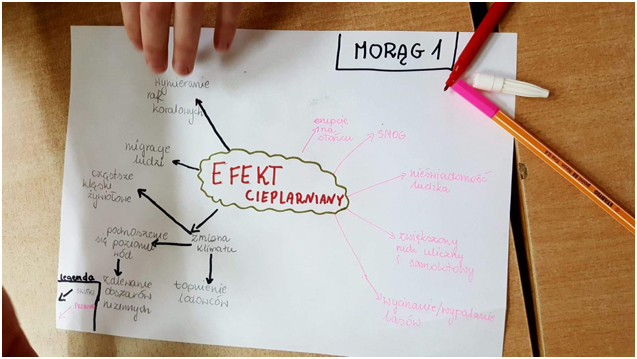 MORĄG 1
wymieranie
raf
koralowych
migracje
ludzi
częstsze
klęski
żywiołowe
EFEKT
CIEPLARNIANY
erupcje
na
słońcu
SMOG
nieświadomość
ludzka
zwiększony
ruch uliczny
i samolotowy
wycinanie/wypalanie
lasów
podnoszenie
się poziomu
wód
zmiana
klimatu
zalewanie
obszarów
nizinnych
topnienie
lodowców
legenda
skutki